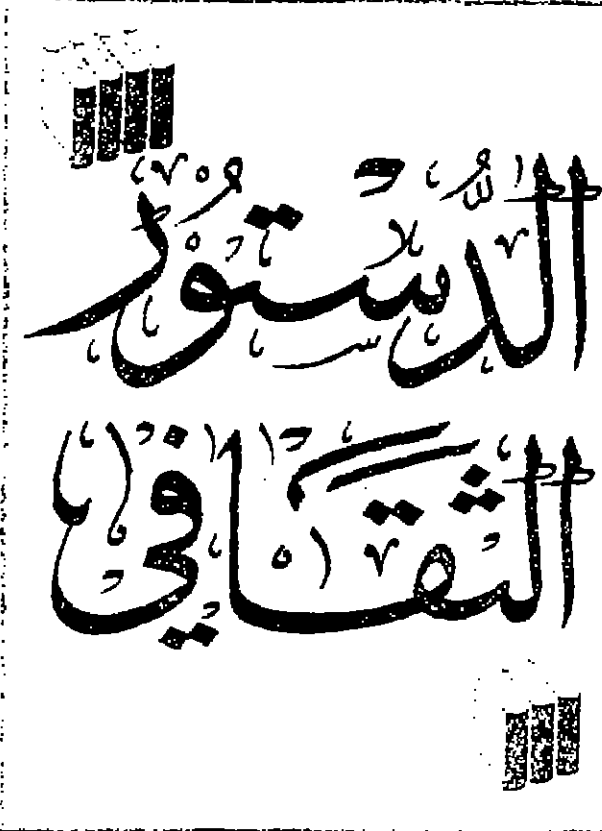 الدُّستورُ
الثقافي